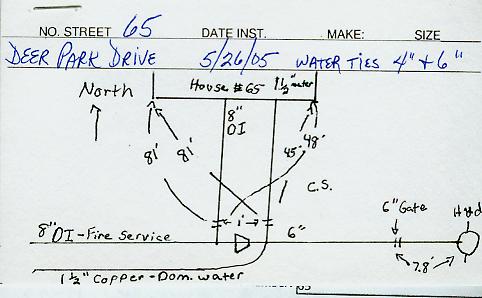 NO. STREET 65 DATE INST. MAKE: SIZE
DEER PARK DRIVE 5/26/05 WATER TIES 4" & 6"
North
House #65 1 1/2" meter
8"
DI
81' 81' 45' 48'
C.S.
1'
6"
6" Gate
Hyd
8" DI - Fire Service
7.8'
1 1/2" Copper - Dom. water